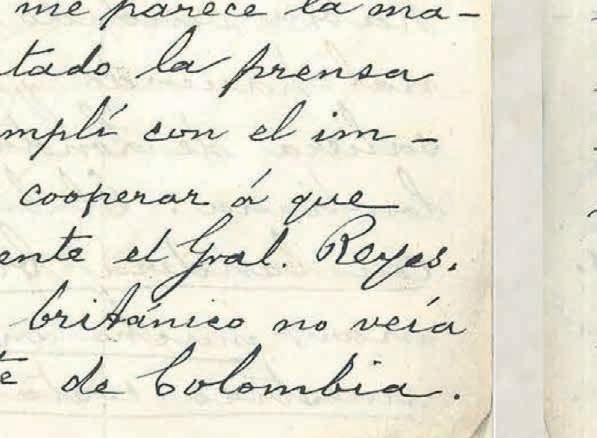 me parece la ma-
tado la prensa
mplí con el im-
cooperar á que
ente el Gral. Reyes.
británico no veía
te de Colombia.